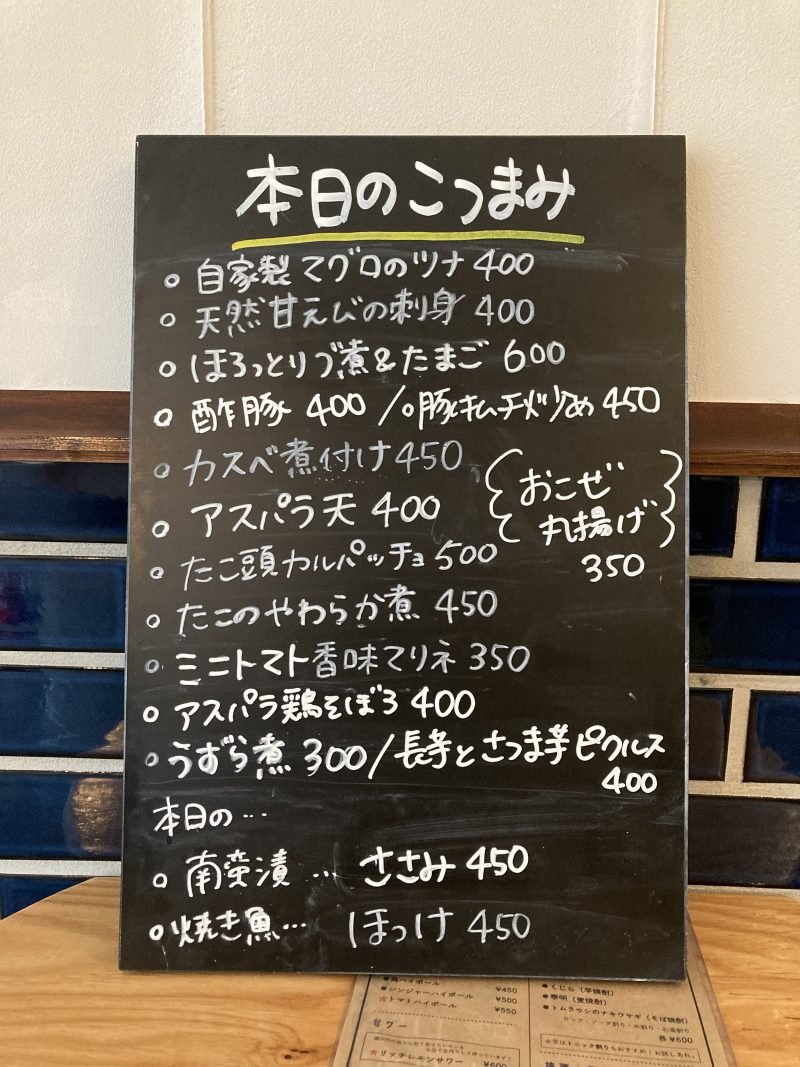 本日のこつまみ
○ 自家製マグロのツナ 400
○ 天然甘えびの刺身 400
○ ほろっとリブ煮&たまご 600
○ 酢豚 400 /○豚キムチ炒め 450
○ カスベ煮付け 450
おこぜ
丸揚げ
350
○ アスパラ天 400
○ たこ頭カルパッチョ 500
○ たこのやわらか煮 450
○ ミニトマト香味マリネ 350
○ アスパラ鶏そぼろ 400
○ うずら煮 300/長芋とさつま芋ピクルス
400
本日の…
○ 南蛮漬 … ささみ 450
○ 焼き魚… ほっけ 450
●角ハイボール ¥450
●ジンジャーハイボール ¥500
★トマトハイボール ¥550
サワー
★リッチレモンサワー ¥600
●くじら(芋焼酎)
●壱明(麦焼酎)
●トムラウシのナキウサギ(そば焼酎)
ロック・ソーダ割り・水割り・お湯割り
各¥600
★芋はトニック割りもおすすめ!お試しあれ。